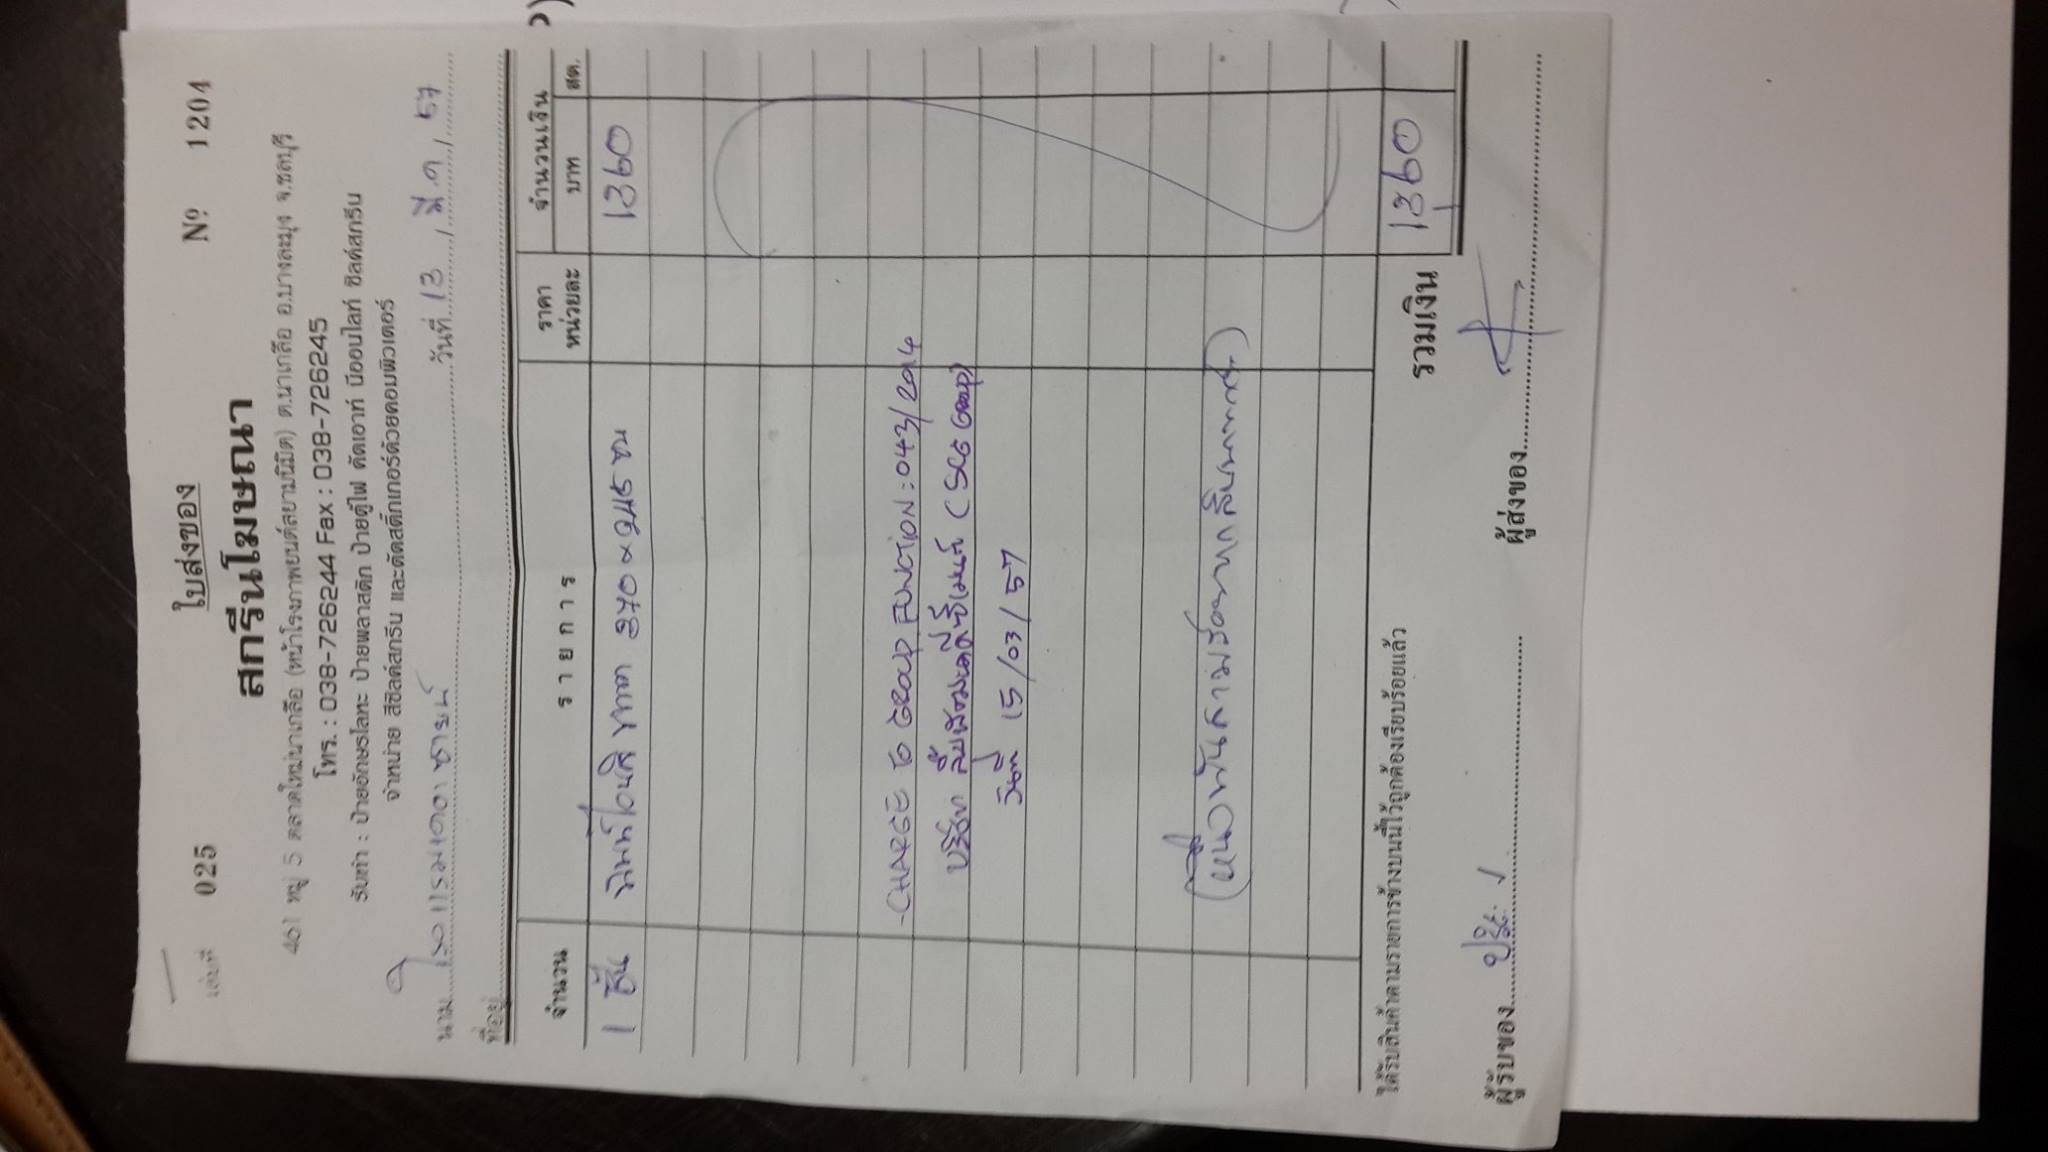 ใบส่งของ
เล่มที่ 025 Nº 1204
สกรีนโฆษณา
461 หมู่ 5 ตลาดใหม่นาเกลือ (หน้าโรงภาพยนต์สยามนิมิต) ต.นาเกลือ อ.บางละมุง จ.ชลบุรี
โทร. : 038-726244 Fax : 038-726245
รับทำ : ป้ายอักษรโลหะ ป้ายพลาสติก ป้ายตู้ไฟ คัดเอาท์ นีออนไลท์ ซิลค์สกรีน
จำหน่าย สีซิลค์สกรีน และตัดสติ๊กเกอร์ด้วยคอมพิวเตอร์
นาม โรงแรม วันที่ 13 / มี.ค / 57
ที่อยู่
จำนวน รายการ ราคา หน่วยละ จำนวนเงิน บาท สต.
1 ชิ้น ขนาด 270 x 245 ซม 1360
-CHARGE TO GROUP FUNCTION : 043/2014
บริษัท (SCG Group)
วันที่ 15/03/57
ได้รับสินค้าตามรายการข้างบนนี้ไว้ถูกต้องเรียบร้อยแล้ว รวมเงิน 1360
ผู้รับของ ผู้ส่งของ